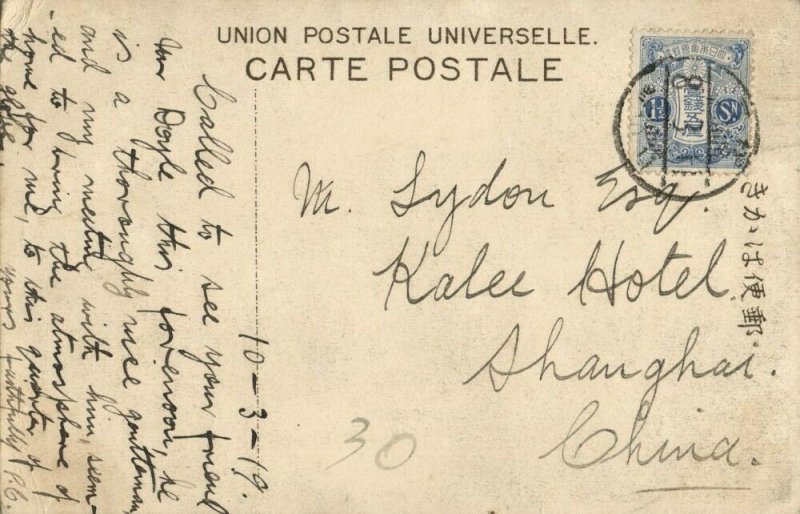 UNION POSTALE UNIVERSELLE.
CARTE POSTALE
10-3-19.
Called to see your friend
Mr Doyle this forenoon, he
is a thoroughly nice gentleman,
and my meeting with him, seem-
ed to bring the atmosphere of
home for me, to this quarter of
the globe.
yours faithfully P.C.
M. Lydon Esq.
Kalee Hotel
Shanghai.
China.
きかは便郵
30